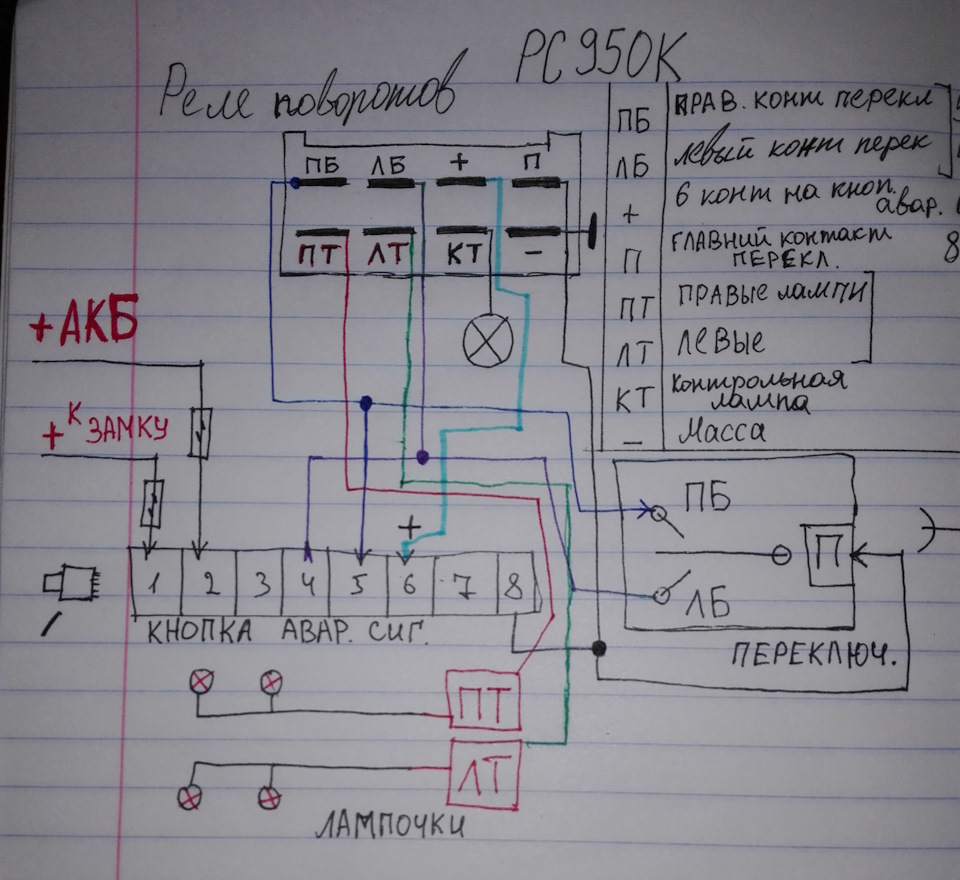 Реле поворотов РС950К
ПБ ЛБ + П
ПТ ЛТ КТ –
ПБ ПРАВ. конт перекл
ЛБ левый конт перек
+ 6 конт на кноп. авар.
П ГЛАВНИЙ контакт ПЕРЕКЛ. 8
ПТ ПРАВЫЕ лампи
ЛТ ЛЕВЫЕ
КТ контрольная лампа
– Масса
+АКБ
+ К ЗАМКУ
+
1 2 3 4 5 6 7 8
КНОПКА АВАР. СИГ.
ПБ
П
ЛБ
ПЕРЕКЛЮЧ.
ПТ
ЛТ
ЛАМПОЧКИ